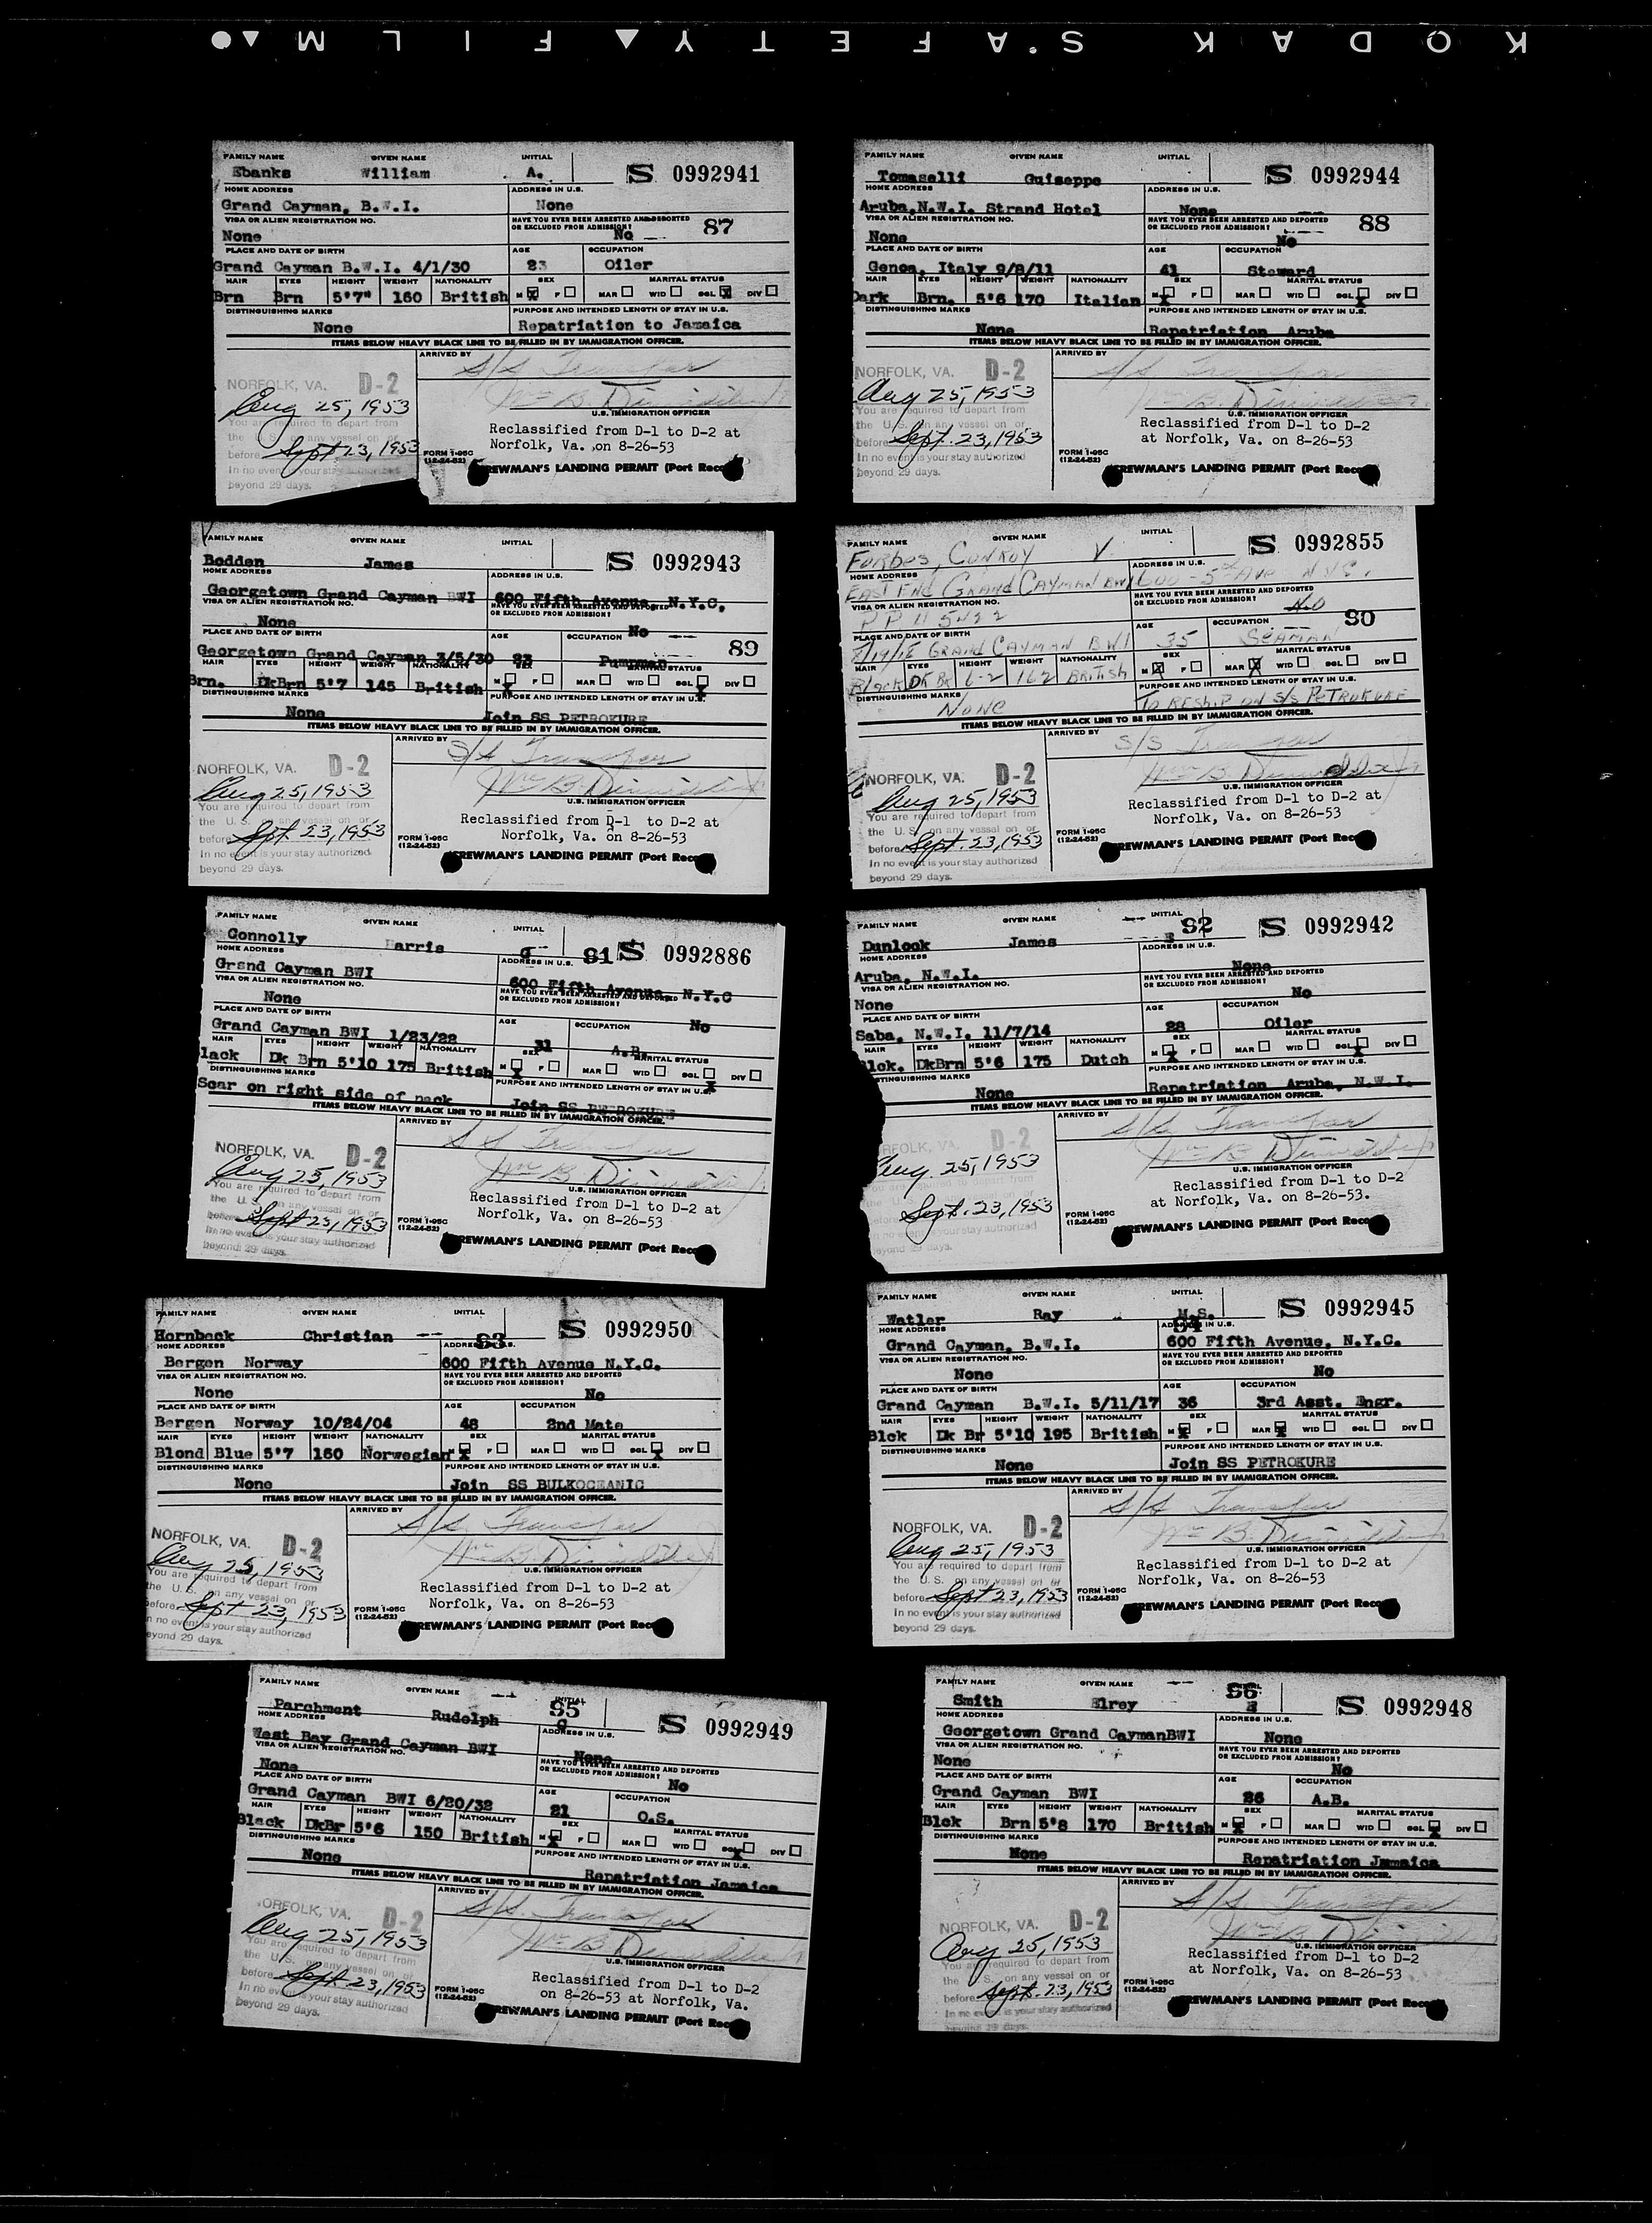 KODAK SAFETY FILM
FAMILY NAME GIVEN NAME INITIAL
Ebanks William A. S 0992941
HOME ADDRESS ADDRESS IN U.S.
Grand Cayman, B.W.I. None
VISA OR ALIEN REGISTRATION NO. HAVE YOU EVER BEEN ARRESTED AND DEPORTED OR EXCLUDED FROM ADMISSION?
None No 87
PLACE AND DATE OF BIRTH AGE OCCUPATION
Grand Cayman B.W.I. 4/1/30 23 Oiler
HAIR EYES HEIGHT WEIGHT NATIONALITY SEX MARITAL STATUS
Brn Brn 5'7" 160 British M X F MAR WID SGL X DIV
DISTINGUISHING MARKS PURPOSE AND INTENDED LENGTH OF STAY IN U.S.
None Repatriation to Jamaica
ITEMS BELOW HEAVY BLACK LINE TO BE FILLED IN BY IMMIGRATION OFFICER.
ARRIVED BY
S/S Transfer
NORFOLK, VA. D-2
Aug 25, 1953
U.S. IMMIGRATION OFFICER
You are required to depart from
the U.S. on any vessel on or
before Sept. 23, 1953
In no event is your stay authorized
beyond 29 days.
Reclassified from D-1 to D-2 at
Norfolk, Va. on 8-26-53
FORM I-95C
(12-24-52)
CREWMAN'S LANDING PERMIT (Port Rec
FAMILY NAME GIVEN NAME INITIAL
Tomaselli Guiseppe S 0992944
HOME ADDRESS ADDRESS IN U.S.
Aruba,N.W.I. Strand Hotel None
VISA OR ALIEN REGISTRATION NO. HAVE YOU EVER BEEN ARRESTED AND DEPORTED OR EXCLUDED FROM ADMISSION?
None No 88
PLACE AND DATE OF BIRTH AGE OCCUPATION
Genoa, Italy 9/8/11 41 Steward
HAIR EYES HEIGHT WEIGHT NATIONALITY SEX MARITAL STATUS
Dark Brn. 5'6 170 Italian M X F MAR WID SGL X DIV
DISTINGUISHING MARKS PURPOSE AND INTENDED LENGTH OF STAY IN U.S.
None Repatriation Aruba
ITEMS BELOW HEAVY BLACK LINE TO BE FILLED IN BY IMMIGRATION OFFICER.
ARRIVED BY
S/S Transfer
NORFOLK, VA. D-2
Aug 25, 1953
U.S. IMMIGRATION OFFICER
You are required to depart from
the U.S. on any vessel on or
before Sept. 23, 1953
In no event is your stay authorized
beyond 29 days.
Reclassified from D-1 to D-2
at Norfolk, Va. on 8-26-53
FORM I-95C
(12-24-52)
CREWMAN'S LANDING PERMIT (Port Rec
FAMILY NAME GIVEN NAME INITIAL
Bodden James S 0992943
HOME ADDRESS ADDRESS IN U.S.
Georgetown Grand Cayman BWI 600 Fifth Avenue N.Y.C.
VISA OR ALIEN REGISTRATION NO. HAVE YOU EVER BEEN ARRESTED AND DEPORTED OR EXCLUDED FROM ADMISSION?
None No
PLACE AND DATE OF BIRTH AGE OCCUPATION 89
Georgetown Grand Cayman 3/5/30 23 Pumpman
HAIR EYES HEIGHT WEIGHT NATIONALITY SEX MARITAL STATUS
Brn. DkBrn 5'7 145 British M X F MAR WID SGL X DIV
DISTINGUISHING MARKS PURPOSE AND INTENDED LENGTH OF STAY IN U.S.
None Join SS PETROKURE
ITEMS BELOW HEAVY BLACK LINE TO BE FILLED IN BY IMMIGRATION OFFICER.
ARRIVED BY
S/S Transfer
NORFOLK, VA. D-2
Aug 25, 1953
U.S. IMMIGRATION OFFICER
You are required to depart from
the U.S. on any vessel on or
before Sept 23, 1953
In no event is your stay authorized
beyond 29 days.
Reclassified from D-1 to D-2 at
Norfolk, Va. on 8-26-53
FORM I-95C
(12-24-52)
CREWMAN'S LANDING PERMIT (Port Rec
FAMILY NAME GIVEN NAME INITIAL
Forbes, Conroy V S 0992855
HOME ADDRESS ADDRESS IN U.S.
East End Grand Cayman BWI 600 - 5th Ave N.Y.C.
VISA OR ALIEN REGISTRATION NO. HAVE YOU EVER BEEN ARRESTED AND DEPORTED OR EXCLUDED FROM ADMISSION?
PP 115422 No
PLACE AND DATE OF BIRTH AGE OCCUPATION 90
8/19/18 Grand Cayman BWI 35 Seaman
HAIR EYES HEIGHT WEIGHT NATIONALITY SEX MARITAL STATUS
Black DK BR 6-2 162 British M X F MAR X WID SGL DIV
DISTINGUISHING MARKS PURPOSE AND INTENDED LENGTH OF STAY IN U.S.
None To reship on S/S Petrokure
ITEMS BELOW HEAVY BLACK LINE TO BE FILLED IN BY IMMIGRATION OFFICER.
ARRIVED BY
S/S Transfer
NORFOLK, VA. D-2
Aug 25, 1953
U.S. IMMIGRATION OFFICER
You are required to depart from
the U.S. on any vessel on or
before Sept. 23, 1953
In no event is your stay authorized
beyond 29 days.
Reclassified from D-1 to D-2 at
Norfolk, Va. on 8-26-53
FORM I-95C
(12-24-52)
CREWMAN'S LANDING PERMIT (Port Rec
FAMILY NAME GIVEN NAME INITIAL
Connolly Harris 91 S 0992886
HOME ADDRESS ADDRESS IN U.S.
Grand Cayman BWI 600 Fifth Avenue, N.Y.C
VISA OR ALIEN REGISTRATION NO. HAVE YOU EVER BEEN ARRESTED AND DEPORTED OR EXCLUDED FROM ADMISSION?
None No
PLACE AND DATE OF BIRTH AGE OCCUPATION
Grand Cayman BWI 1/23/22 31 A.B.
HAIR EYES HEIGHT WEIGHT NATIONALITY SEX MARITAL STATUS
lack Dk Brn 5'10 175 British M X F MAR WID SGL X DIV
DISTINGUISHING MARKS PURPOSE AND INTENDED LENGTH OF STAY IN U.S.
Scar on right side of neck Join SS PETROKURE
ITEMS BELOW HEAVY BLACK LINE TO BE FILLED IN BY IMMIGRATION OFFICER.
ARRIVED BY
S/S Transfer
NORFOLK, VA. D-2
Aug 25, 1953
U.S. IMMIGRATION OFFICER
You are required to depart from
the U.S. on any vessel on or
before Sept 23, 1953
In no event is your stay authorized
beyond 29 days.
Reclassified from D-1 to D-2 at
Norfolk, Va. on 8-26-53
FORM I-95C
(12-24-52)
CREWMAN'S LANDING PERMIT (Port Rec
FAMILY NAME GIVEN NAME INITIAL
Dunlock James 92 S 0992942
HOME ADDRESS ADDRESS IN U.S.
Aruba, N.W.I. None
VISA OR ALIEN REGISTRATION NO. HAVE YOU EVER BEEN ARRESTED AND DEPORTED OR EXCLUDED FROM ADMISSION?
None No
PLACE AND DATE OF BIRTH AGE OCCUPATION
Saba, N.W.I. 11/7/14 28 Oiler
HAIR EYES HEIGHT WEIGHT NATIONALITY SEX MARITAL STATUS
Blck. DkBrn 5'6 175 Dutch M X F MAR WID SGL X DIV
DISTINGUISHING MARKS PURPOSE AND INTENDED LENGTH OF STAY IN U.S.
None Repatriation Aruba, N.W.I.
ITEMS BELOW HEAVY BLACK LINE TO BE FILLED IN BY IMMIGRATION OFFICER.
ARRIVED BY
S/S Transfer
RFOLK, VA. D-2
Aug. 25, 1953
U.S. IMMIGRATION OFFICER
Sept. 23, 1953
your stay authorized
eyond 29 days.
Reclassified from D-1 to D-2
at Norfolk, Va. on 8-26-53.
FORM I-95C
(12-24-52)
CREWMAN'S LANDING PERMIT (Port Rec
FAMILY NAME GIVEN NAME INITIAL
Hornbeck Christian 93 S 0992950
HOME ADDRESS ADDRESS IN U.S.
Bergen Norway 600 Fifth Avenue N.Y.C.
VISA OR ALIEN REGISTRATION NO. HAVE YOU EVER BEEN ARRESTED AND DEPORTED OR EXCLUDED FROM ADMISSION?
None No
PLACE AND DATE OF BIRTH AGE OCCUPATION
Bergen Norway 10/24/04 48 2nd Mate
HAIR EYES HEIGHT WEIGHT NATIONALITY SEX MARITAL STATUS
Blond Blue 5'7 160 Norwegian M X F MAR WID SGL X DIV
DISTINGUISHING MARKS PURPOSE AND INTENDED LENGTH OF STAY IN U.S.
None Join SS BULKOCEANIC
ITEMS BELOW HEAVY BLACK LINE TO BE FILLED IN BY IMMIGRATION OFFICER.
ARRIVED BY
S/S Transfer
NORFOLK, VA. D-2
Aug 25, 1953
U.S. IMMIGRATION OFFICER
You are required to depart from
the U.S. on any vessel on or
before Sept 23, 1953
n no event is your stay authorized
eyond 29 days.
Reclassified from D-1 to D-2 at
Norfolk, Va. on 8-26-53
FORM I-95C
(12-24-52)
CREWMAN'S LANDING PERMIT (Port Rec
FAMILY NAME GIVEN NAME INITIAL
Watler Ray M.S. 94 S 0992945
HOME ADDRESS ADDRESS IN U.S.
Grand Cayman, B.W.I. 600 Fifth Avenue, N.Y.C.
VISA OR ALIEN REGISTRATION NO. HAVE YOU EVER BEEN ARRESTED AND DEPORTED OR EXCLUDED FROM ADMISSION?
None No
PLACE AND DATE OF BIRTH AGE OCCUPATION
Grand Cayman B.W.I. 5/11/17 36 3rd Asst. Engr.
HAIR EYES HEIGHT WEIGHT NATIONALITY SEX MARITAL STATUS
Blck Dk Br 5'10 195 British M X F MAR X WID SGL DIV
DISTINGUISHING MARKS PURPOSE AND INTENDED LENGTH OF STAY IN U.S.
None Join SS PETROKURE
ITEMS BELOW HEAVY BLACK LINE TO BE FILLED IN BY IMMIGRATION OFFICER.
ARRIVED BY
S/S Transfer
NORFOLK, VA. D-2
Aug 25, 1953
U.S. IMMIGRATION OFFICER
You are required to depart from
the U.S. on any vessel on or
before Sept 23, 1953
In no event is your stay authorized
beyond 29 days.
Reclassified from D-1 to D-2 at
Norfolk, Va. on 8-26-53
FORM I-95C
(12-24-52)
CREWMAN'S LANDING PERMIT (Port Rec
FAMILY NAME GIVEN NAME INITIAL
Parchment Rudolph 95 S 0992949
HOME ADDRESS ADDRESS IN U.S.
West Bay Grand Cayman BWI None
VISA OR ALIEN REGISTRATION NO. HAVE YOU EVER BEEN ARRESTED AND DEPORTED OR EXCLUDED FROM ADMISSION?
None No
PLACE AND DATE OF BIRTH AGE OCCUPATION
Grand Cayman BWI 6/20/32 21 O.S.
HAIR EYES HEIGHT WEIGHT NATIONALITY SEX MARITAL STATUS
Black DkBr 5'6 150 British M X F MAR WID SGL X DIV
DISTINGUISHING MARKS PURPOSE AND INTENDED LENGTH OF STAY IN U.S.
None Repatriation Jamaica
ITEMS BELOW HEAVY BLACK LINE TO BE FILLED IN BY IMMIGRATION OFFICER.
ARRIVED BY
S/S. Transfer
ORFOLK, VA. D-2
Aug 25, 1953
U.S. IMMIGRATION OFFICER
You are required to depart from
the U.S. on any vessel on or
before Sept 23, 1953
In no event is your stay authorized
beyond 29 days.
Reclassified from D-1 to D-2
on 8-26-53 at Norfolk, Va.
FORM I-95C
(12-24-52)
CREWMAN'S LANDING PERMIT (Port Rec
FAMILY NAME GIVEN NAME INITIAL
Smith Elrey E 96 S 0992948
HOME ADDRESS ADDRESS IN U.S.
Georgetown Grand CaymanBWI None
VISA OR ALIEN REGISTRATION NO. HAVE YOU EVER BEEN ARRESTED AND DEPORTED OR EXCLUDED FROM ADMISSION?
None No
PLACE AND DATE OF BIRTH AGE OCCUPATION
Grand Cayman BWI 26 A.B.
HAIR EYES HEIGHT WEIGHT NATIONALITY SEX MARITAL STATUS
Blck Brn 5'8 170 British M X F MAR WID SGL X DIV
DISTINGUISHING MARKS PURPOSE AND INTENDED LENGTH OF STAY IN U.S.
None Repatriation Jamaica
ITEMS BELOW HEAVY BLACK LINE TO BE FILLED IN BY IMMIGRATION OFFICER.
ARRIVED BY
S/S. Transfer
NORFOLK, VA. D-2
Aug 25, 1953
U.S. IMMIGRATION OFFICER
You are required to depart from
the U.S. on any vessel on or
before Sept. 23, 1953
In no event is your stay authorized
beyond 29 days.
Reclassified from D-1 to D-2
at Norfolk, Va. on 8-26-53
FORM I-95C
(12-24-52)
CREWMAN'S LANDING PERMIT (Port Rec